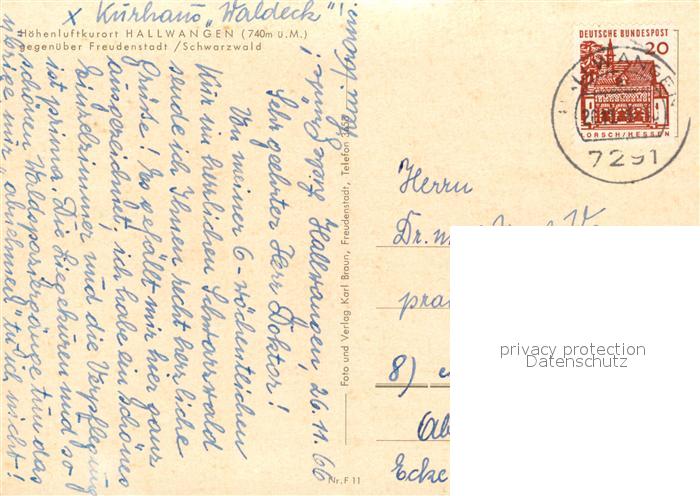 x Kurhaus „Waldeck"!
Höhenluftkurort HALLWANGEN (740m ü.M.)
gegenüber Freudenstadt / Schwarzwald
Hallwangen, 26.11.66
Sehr geehrter Herr Doktor!
Von meiner 6-wöchentlichen
Kur im herrlichen Schwarzwald
sende ich Ihnen recht herzliche
Grüsse! Es gefällt mir hier ganz
ausgezeichnet, ich habe ein schönes
Einzelzimmer und die Verpflegung
ist prima. Die Liegekuren und so
schönen Waldspaziergänge tun das
übrige nur „abnehmen" tu ich nicht!
Foto und Verlag Karl Braun, Freudenstadt, Telefon
Nr. F 11
DEUTSCHE BUNDESPOST
20
LORSCH/HESSEN
HALLWANGEN
7291
Herrn
Dr. m
pra
8)
Ecke
privacy protection
Datenschutz